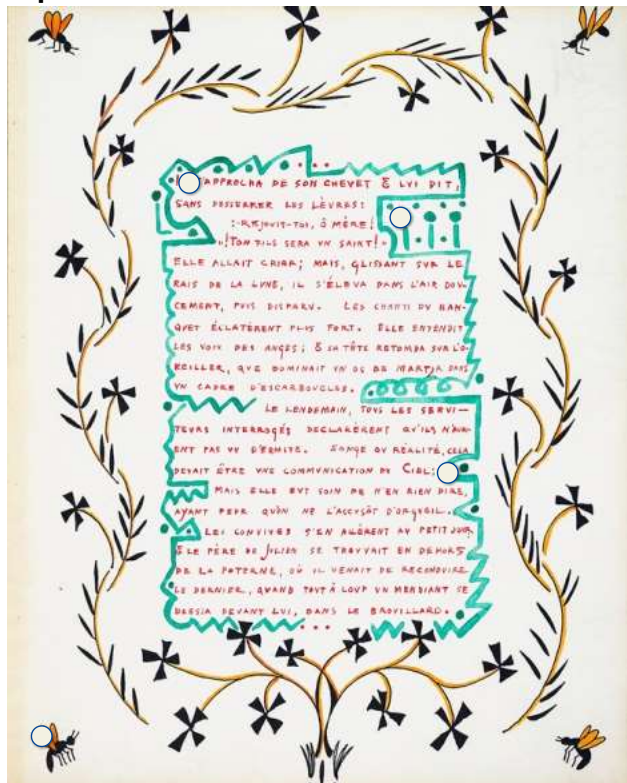 APPROCHA DE SON CHEVET & LVI DIT,
SANS DESSERRER LES LÈVRES:
:-REJOVIT-TOI, Ô MÈRE!
»!TON FILS SERA VN SAINT!-
ELLE ALLAIT CRIER; MAIS, GLISSANT SVR LE
RAIS DE LA LVNE, IL S'ÉLEVA DANS L'AIR DOV-
CEMENT, PVIS DISPARV. LES CHANTS DV BAN-
QVET ÉCLATÈRENT PLVS FORT. ELLE ENTENDIT
LES VOIX DES ANGES; & SA TÊTE RETOMBA SVR L'O-
REILLER, QVE DOMINAIT VN OS DE MARTYR DANS
VN CADRE D'ESCARBOVCLES.
LE LENDEMAIN, TOVS LES SERVI-
TEVRS INTERROGÉS DECLARÈRENT QV'ILS N'AV-
ENT PAS VV D'ERMITE. SONGE OV RÉALITÉ, CELA
DEVAIT ÊTRE VNE COMMVNICATION DV CIEL;
MAIS ELLE EVT SOIN DE N'EN RIEN DIRE,
AYANT PEVR QV'ON NE L'ACCVSÂT D'ORGVEIL.
LES CONVIVES S'EN ALÈRENT AV PETIT JOVR
& LE PÈRE DE JVLIEN SE TROVVAIT EN DEHORS
DE LA POTERNE, OÙ IL VENAIT DE RECONDVIRE
LE DERNIER, QVAND TOVT À COVP VN MENDIANT SE
DRESSA DEVANT LVI, DANS LE BROVILLARD.